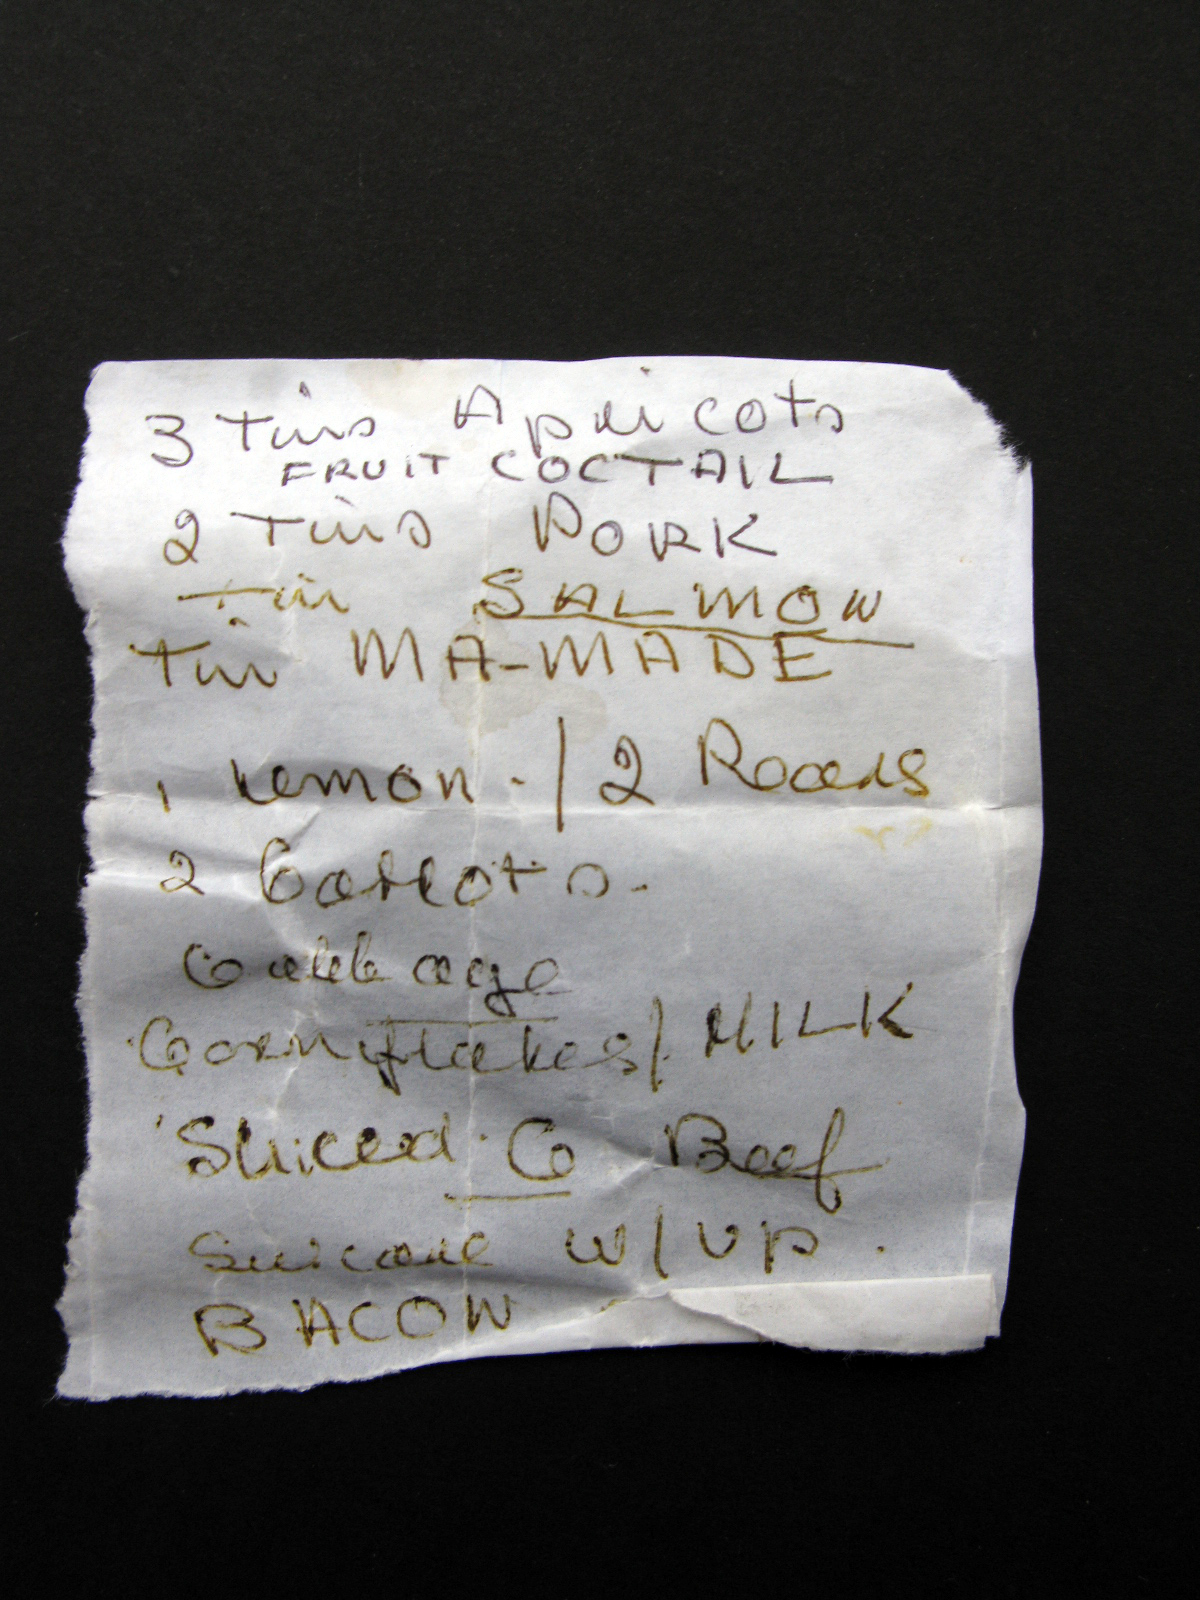 3 Tins Apricots
FRUIT COCTAIL
2 Tins PORK
Tin SALMON
Tin MA-MADE
1 Lemon. / 2
2 Carrots.
Cabbage
Cornflakes / MILK
Sliced C Beef
w/up.
BACON